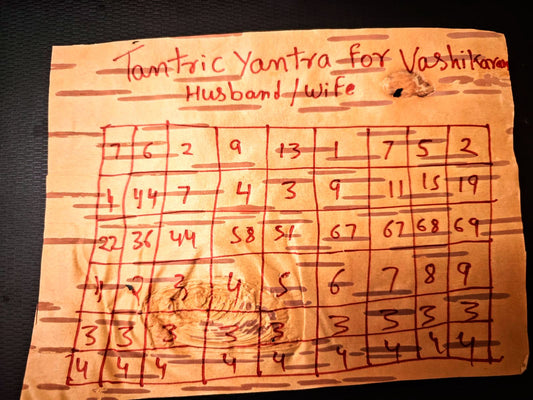 Tantric Yantra for Vashikaran
Husband/Wife
7 6 2 9 13 1 7 5 2
1 44 7 4 3 9 11 15 19
22 36 44 58 51 67 67 68 69
1 2 3 4 5 6 7 8 9
3 3 3 3 3 3 3 3 3
4 4 4 4 4 4 4 4 4